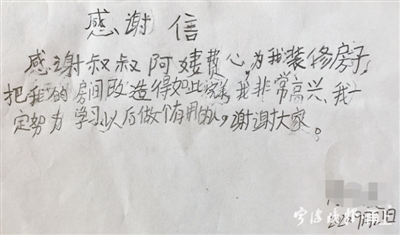 感谢信
感谢叔叔阿姨费心,为我装修房子,
把我的房间改造得如此漂亮,我非常高兴、我一
定努力学习,以后做个有用的人,谢谢大家。